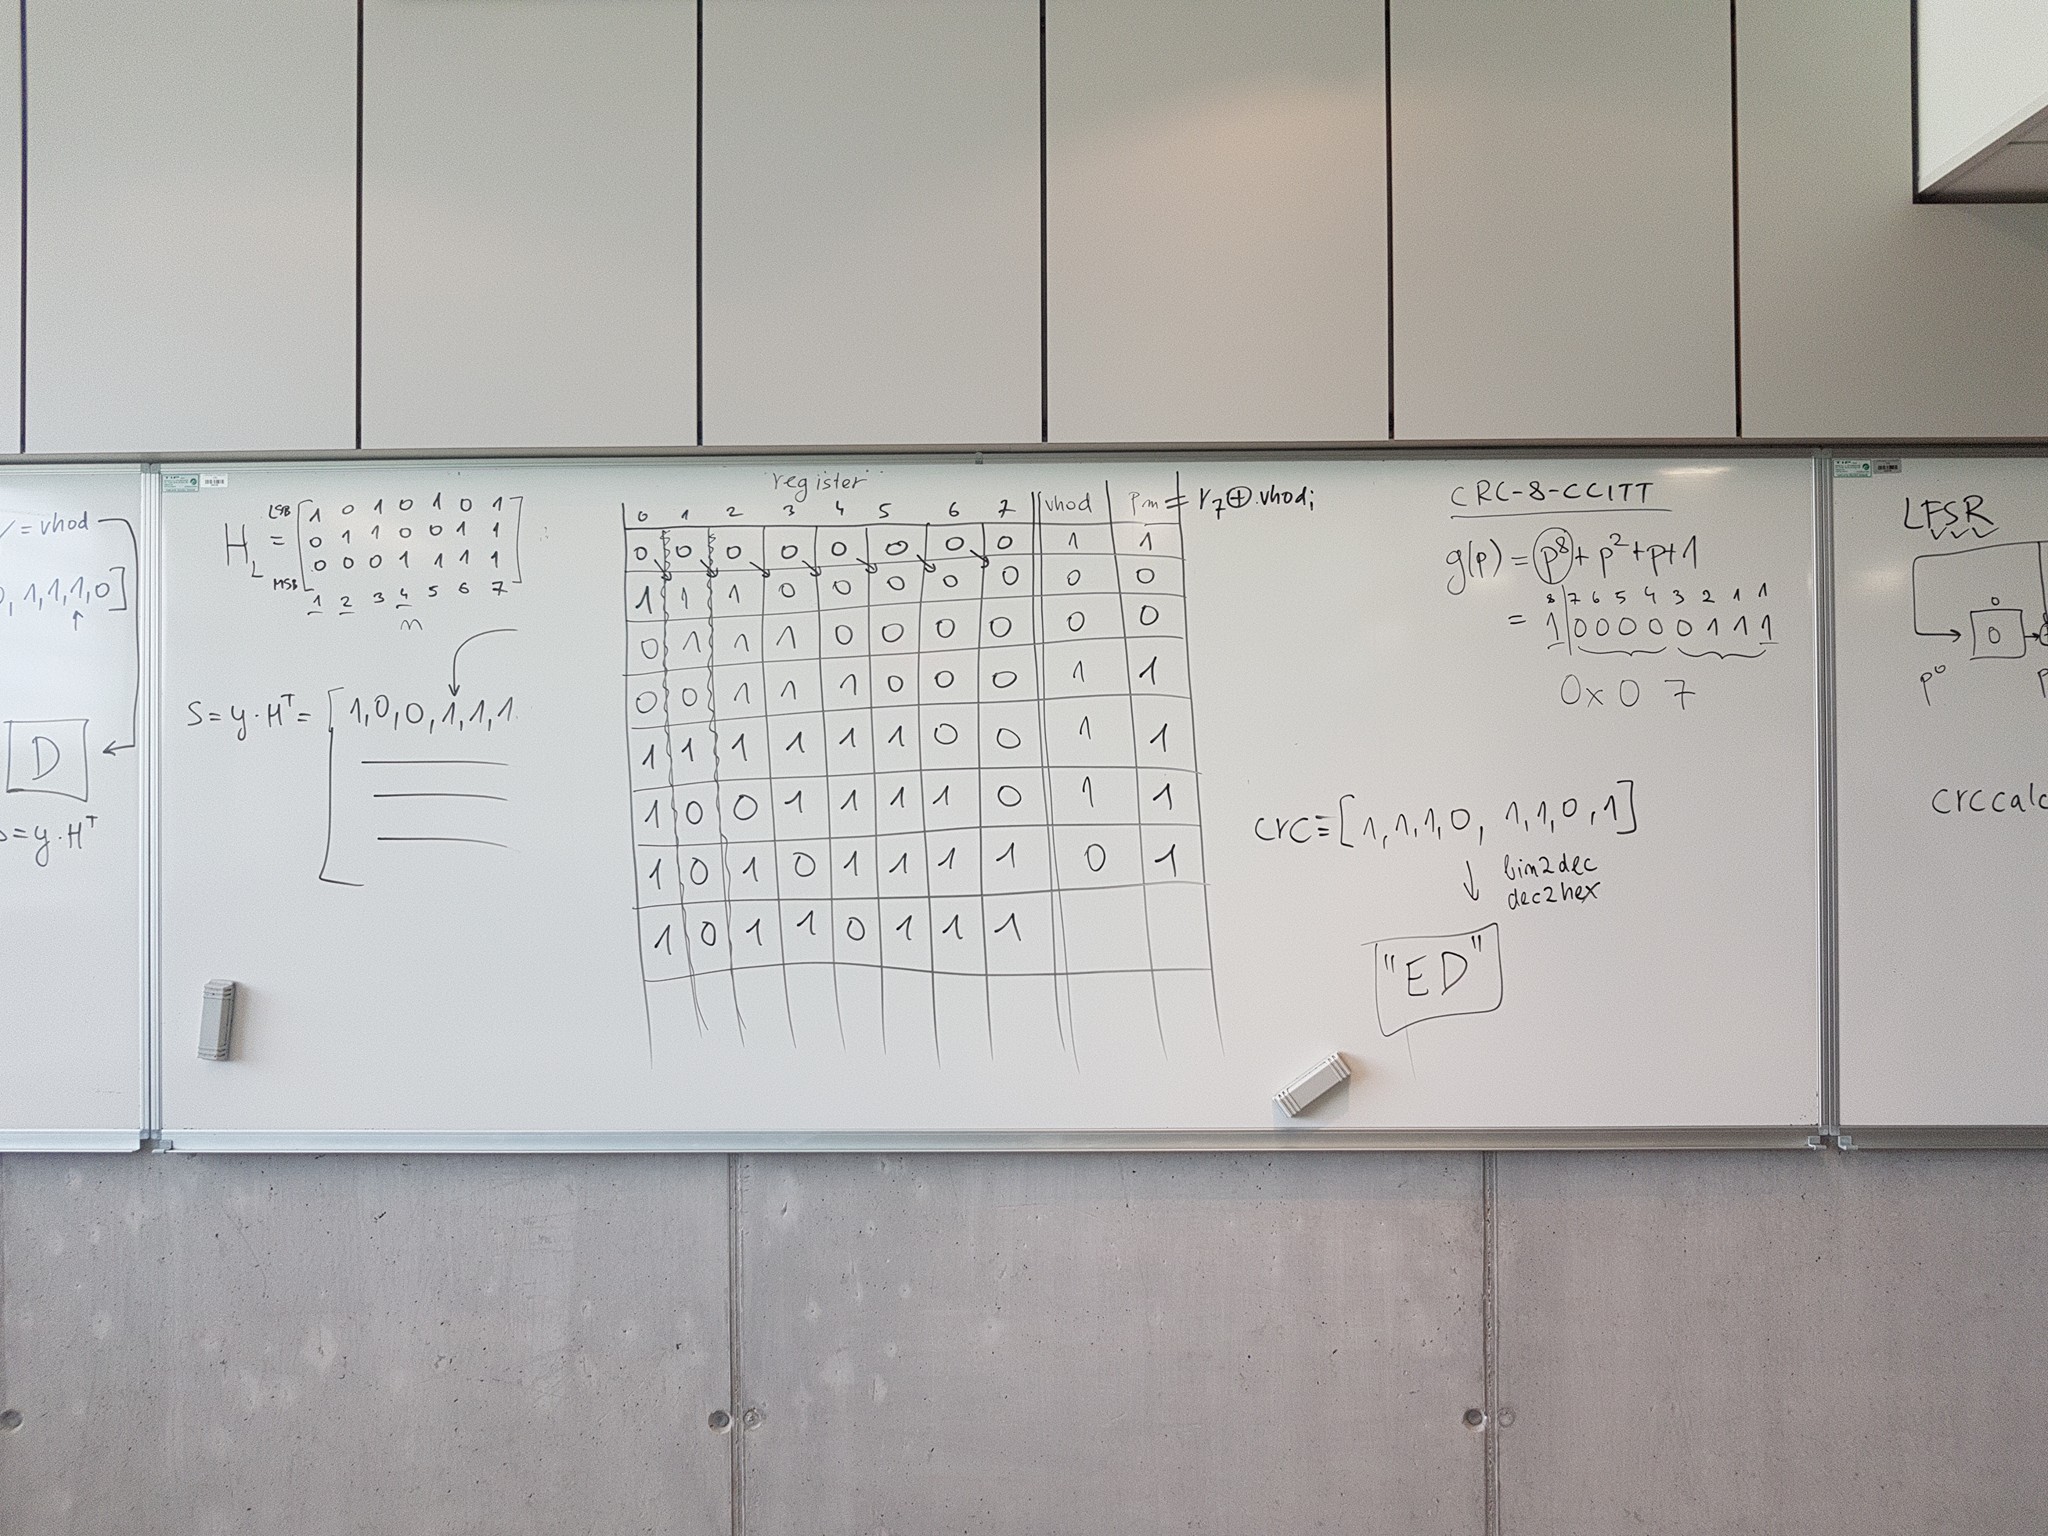 = vhod
0, 1,1,1,0]
↑
D
= y·Hᵀ
LSB
MSB
H_L = [1 0 1 0 1 0 1
0 1 1 0 0 1 1
0 0 0 1 1 1 1]
1 2 3 4 5 6 7
n
S = y·Hᵀ = [1,0,0,1,1,1.
register
0 1 2 3 4 5 6 7 vhod pm = r7⊕vhod;
0 0 0 0 0 0 0 0 1 1
1 1 1 0 0 0 0 0 0 0
0 1 1 1 0 0 0 0 0 0
0 0 1 1 1 0 0 0 1 1
1 1 1 1 1 1 0 0 1 1
1 0 0 1 1 1 1 0 1 1
1 0 1 0 1 1 1 1 0 1
1 0 1 1 0 1 1 1
CRC-8-CCITT
g(p) = p⁸ + p² + p + 1
8 7 6 5 4 3 2 1 1
= 1 0 0 0 0 0 1 1 1
0x07
crc = [1,1,1,0, 1,1,0,1]
↓ bin2dec
dec2hex
"ED"
LFSR
0
0
p⁰
crccalc